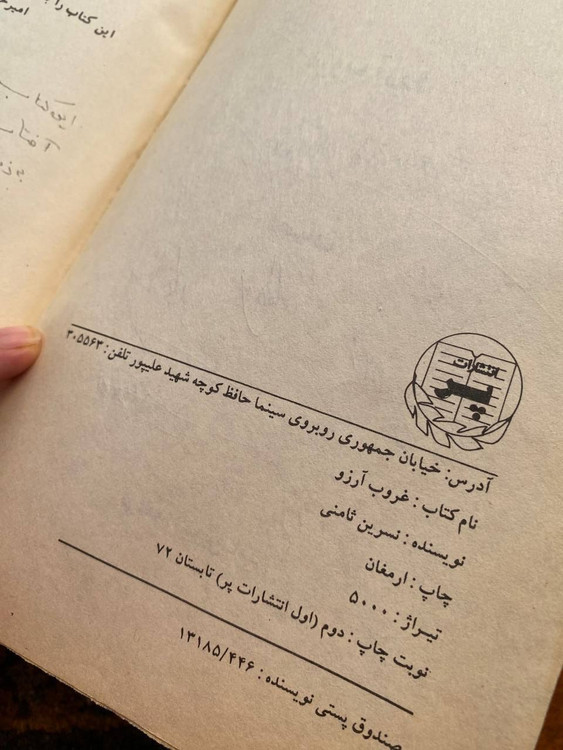 این کتاب را
امیر
این کتاب
انتشارات
پر
آدرس: خیابان جمهوری روبروی سینما حافظ کوچه شهید علیپور تلفن: ۳۰۵۵۶۳
نام کتاب: غروب آرزو
نویسنده: نسرین ثامنی
چاپ: ارمغان
تیراژ: ۵۰۰۰
نوبت چاپ: دوم (اول انتشارات پر) تابستان ۷۲
صندوق پستی نویسنده: ۱۳۱۸۵/۴۴۶